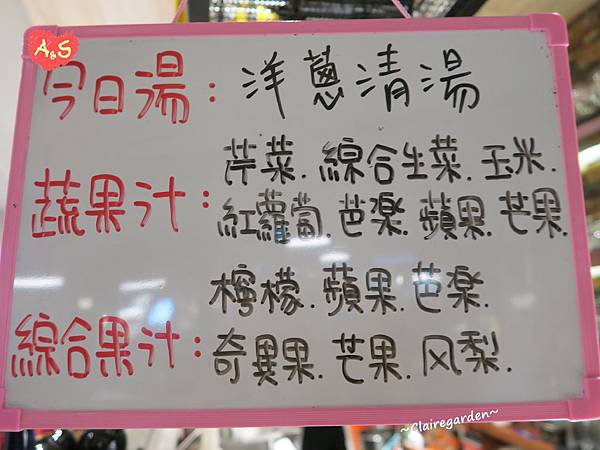 A&S
今日湯：洋蔥清湯
芹菜.綜合生菜.玉米.
蔬果汁：紅蘿蔔.芭樂.蘋果.芒果.
檸檬.蘋果.芭樂.
綜合果汁：奇異果.芒果.风梨.
~Clairegarden~